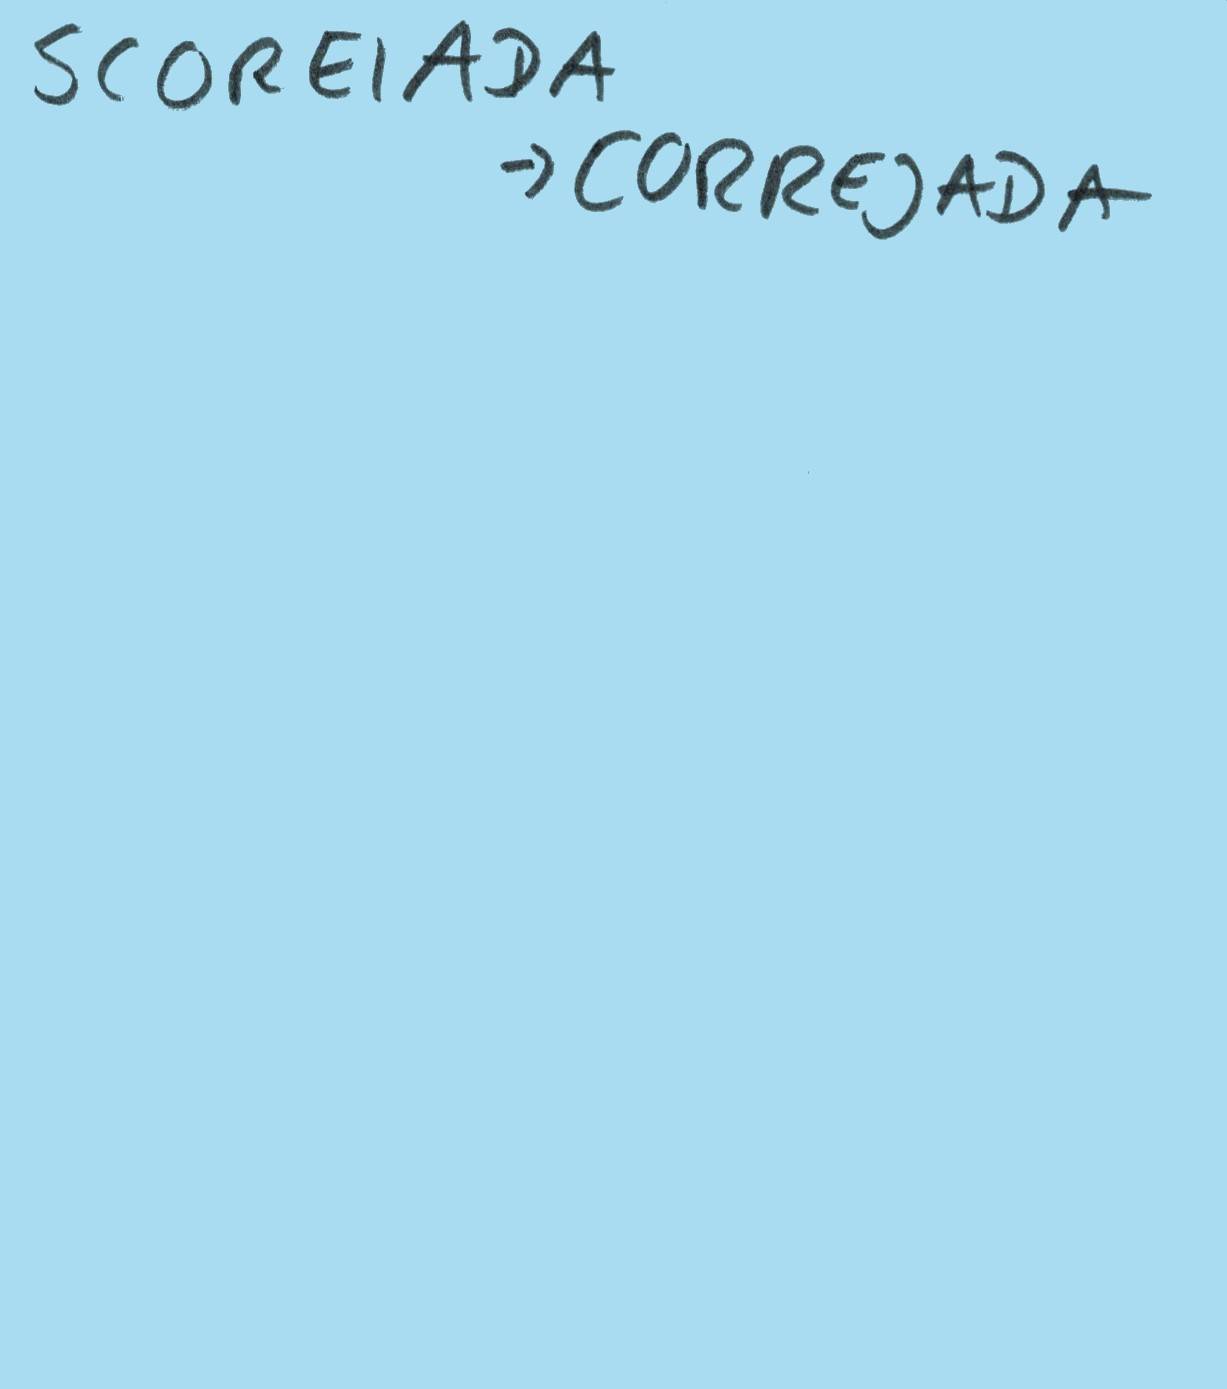 SCOREIADA
→ CORREJADA